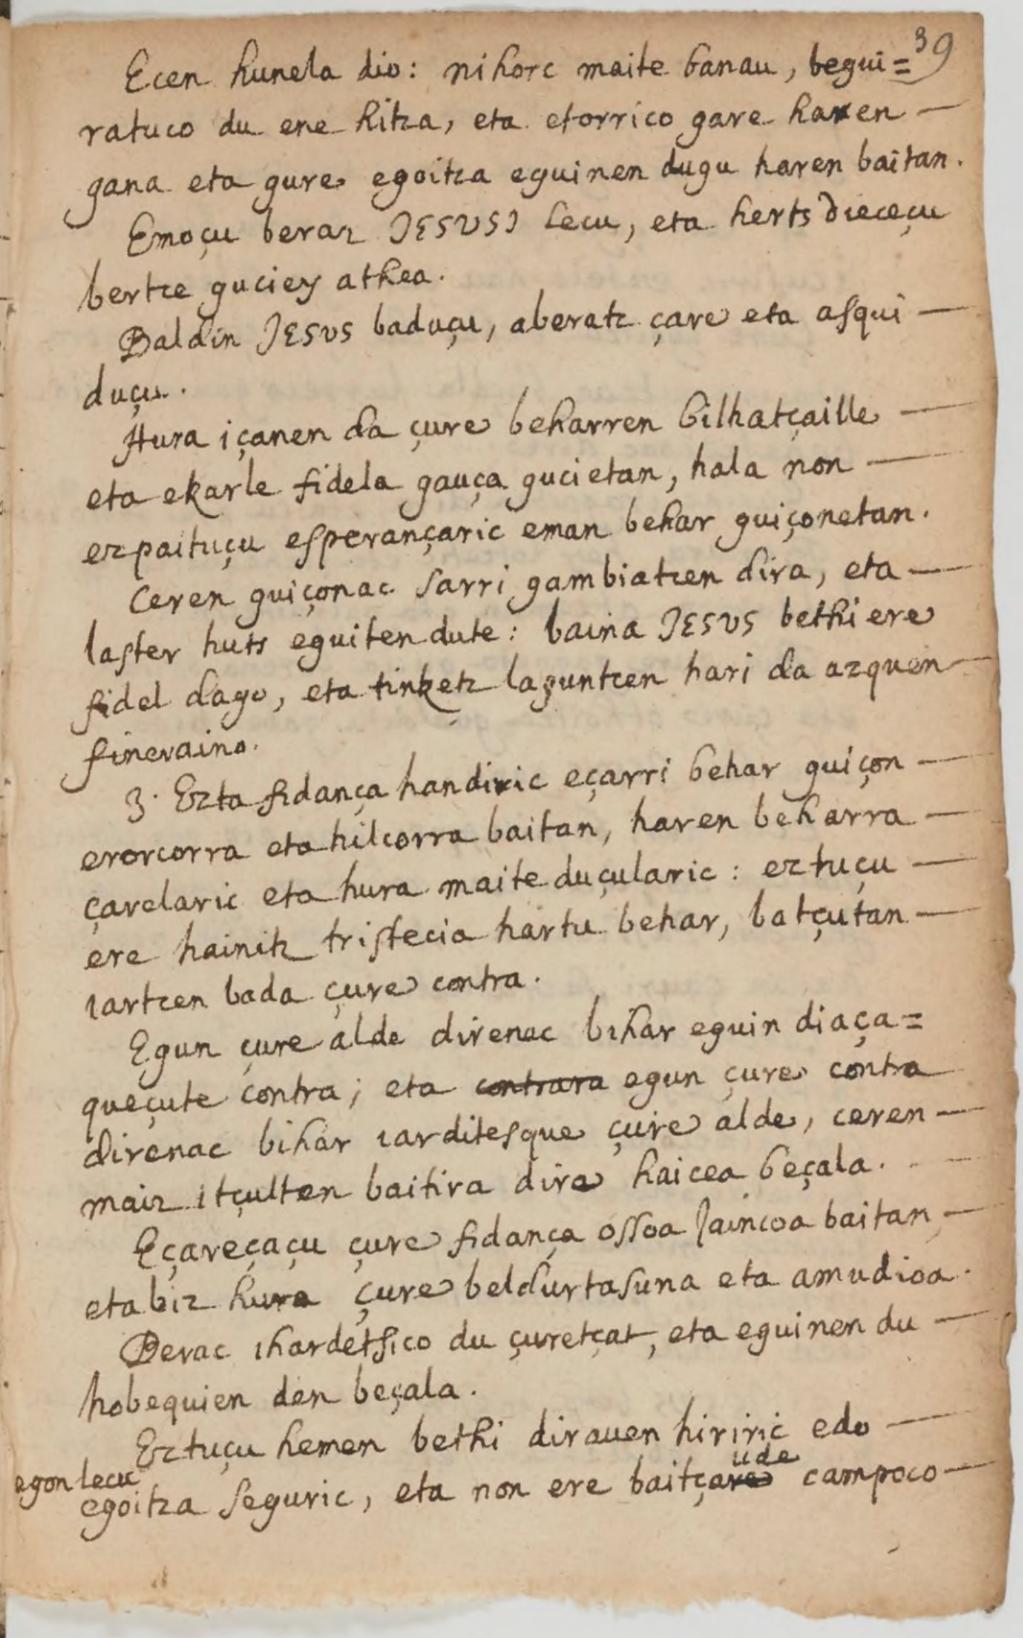 39
Ecen hunela dio: nihorc maite banau, begui=
ratuco du ene hitza, eta etorrico gare haren —
gana eta gure egoitza eguinen dugu haren baitan.
Emoçu beraz JESUSI lecu, eta herts dieceçu
bertze guciey athea.
Baldin JESUS baduçu, aberatz çare eta asqui —
duçu.
Hura içanen da çure beharren bilhatçaille —
eta ekarle fidela gauça gucietan, hala non —
ezpaituçu esperançaric eman behar guiçonetan.
Ceren guiçonac sarri gambiatzen dira, eta —
laster huts eguiten dute: baina JESUS bethi ere
fidel dago, eta tinketz laguntzen hari da azquen —
fineraino.
3. Ezta fidança handiric eçarri behar guiçon —
erorcorra eta hilcorra baitan, haren beharra —
çarelaric eta hura maite duçularic: eztuçu —
ere hainitz tristecia hartu behar, batçutan —
iartzen bada çure contra.
Egun çure alde direnac bihar eguin diaça=
queçute contra; eta contrara egun çure contra
direnac bihar iarditesque çure alde, ceren —
maiz itçultzen baitira dira haicea beçala. —
Eçareçaçu çure fidança ossoa Jaincoa baitan —
eta biz hura çure beldurtasuna eta amudioa.
Berac ihardetsico du çuretçat, eta eguinen du —
hobequien den beçala.
Eztuçu hemen bethi dirauen hiriric edo —
egon lecu
egoitza seguric, eta non ere baitçare campoco —
ude